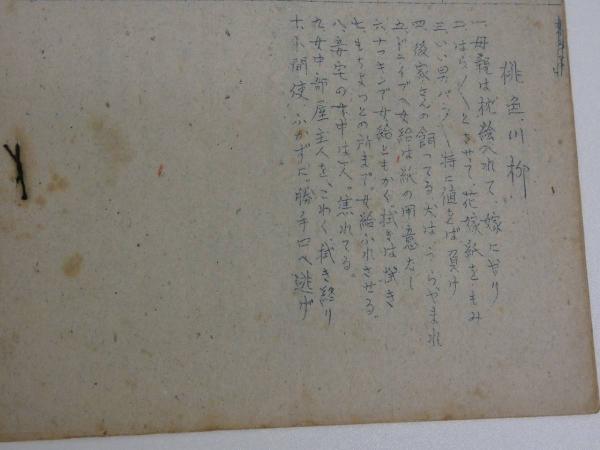 桃色川柳
一、母親は枕絵入れて、嫁にやり
二、はら〳〵とさせて、花嫁紙をもみ
三、いゝ男パン〳〵特に値をば負け
四、後家さんの飼ってる犬はうらやまれ
五、ドライブへ女給は紙の用意をし
六、ナフキンで女給ともかく拭きは拭き
七、もちょっとの所まで女給ふれさせる
八、妾宅の女中は一人、焦れてる
九、女中部屋主人を、こわく、拭き終り
十、小間使、ふかずに、勝手口へ逃げ